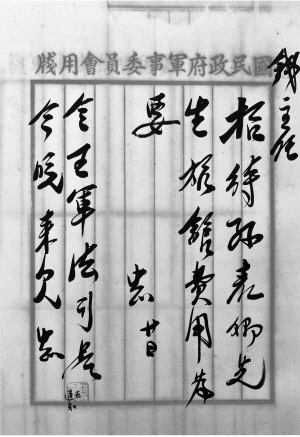 國民政府軍事委員會用牋
錢主任
招待孫表卿先
生旅館費用為
要
中正 廿日
令王軍法司長
今晚來見 中正
已通知